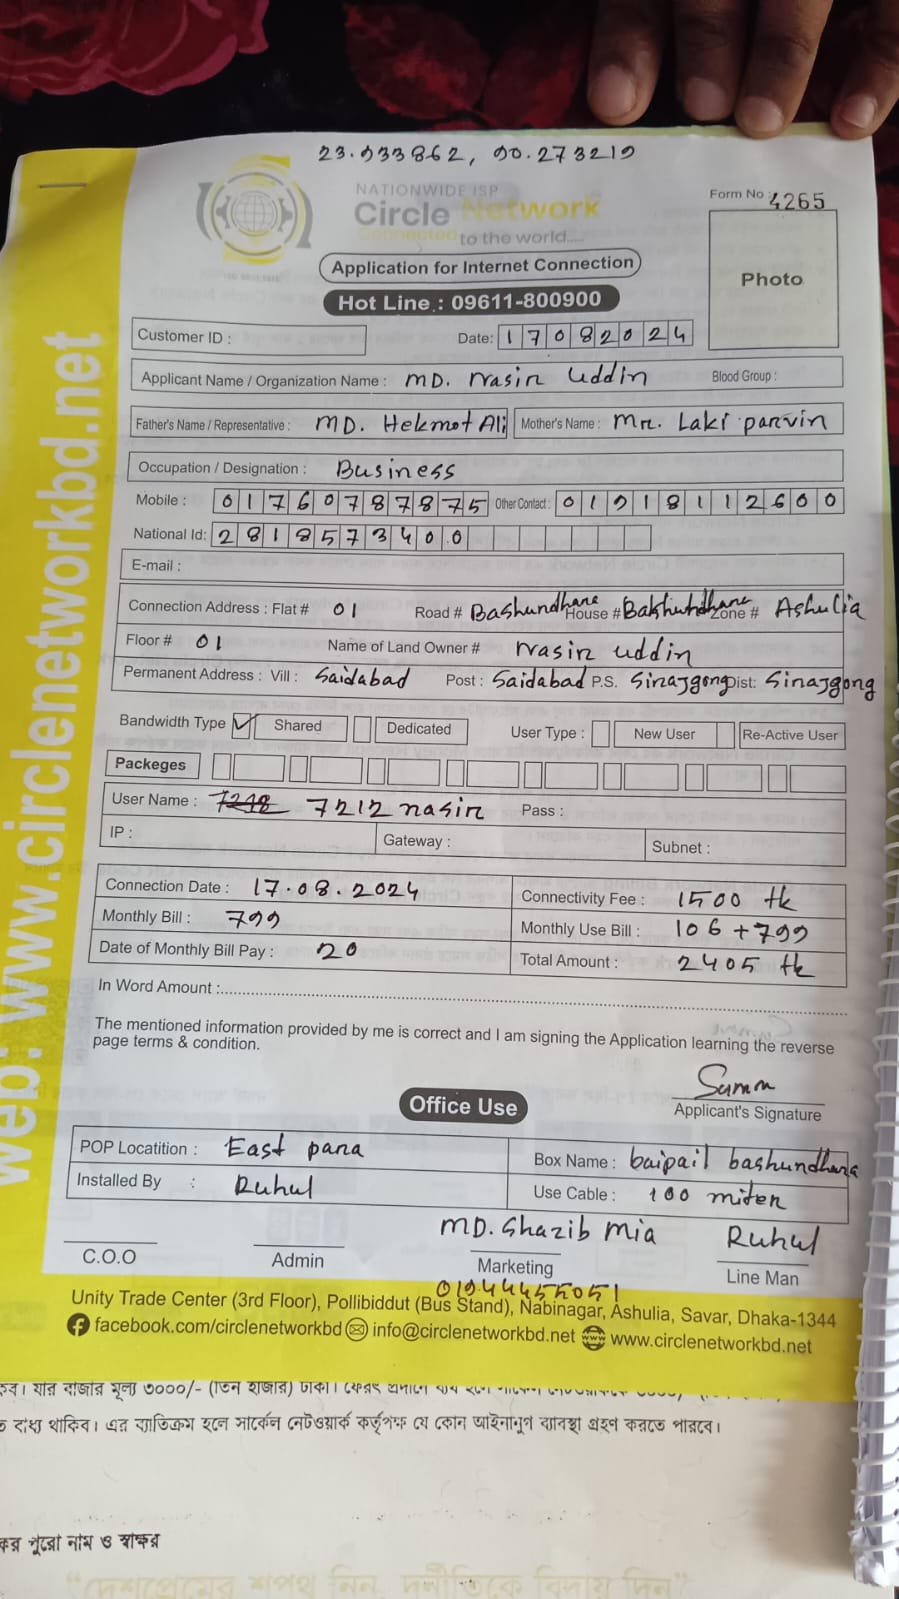 23.933862, 90.273219
NATIONWIDE ISP
Circle Network
Connected to the world....
Form No : 4265
Photo
Application for Internet Connection
Hot Line : 09611-800900
Customer ID :
Date: 17082024
Applicant Name / Organization Name : MD. Nasir Uddin Blood Group :
Father's Name / Representative : MD. Hekmot Ali Mother's Name : Mr. Laki parvin
Occupation / Designation : Business
Mobile : 01760787875 Other Contact : 01918112600
National Id: 2818573400
E-mail :
Connection Address : Flat # 01 Road # Bashundhara House # Bakhundhara Zone # Ashulia
Floor # 01 Name of Land Owner # Nasir uddin
Permanent Address : Vill : Saidabad Post : Saidabad P.S. Sirajgong Dist: Sirajgong
Bandwidth Type Shared Dedicated User Type : New User Re-Active User
Packeges
User Name : 7212 nasir Pass :
IP : Gateway : Subnet :
Connection Date : 17.08.2024 Connectivity Fee : 1500 tk
Monthly Bill : 799 Monthly Use Bill : 106+799
Date of Monthly Bill Pay : 20 Total Amount : 2405 tk
In Word Amount :
The mentioned information provided by me is correct and I am signing the Application learning the reverse
page terms & condition.
Applicant's Signature
Office Use
POP Locatition : East para Box Name : baipail bashundhara
Installed By : Ruhul Use Cable : 100 miter
MD. Shazib Mia Ruhul
C.O.O Admin Marketing Line Man
01944455051
Unity Trade Center (3rd Floor), Pollibiddut (Bus Stand), Nabinagar, Ashulia, Savar, Dhaka-1344
facebook.com/circlenetworkbd info@circlenetworkbd.net www.circlenetworkbd.net
web: www.circlenetworkbd.net
যার বাজার মূল্য ৩০০০/- (তিন হাজার) টাকা।
বাধ্য থাকিব। এর ব্যাতিক্রম হলে সার্কেল নেটওয়ার্ক কর্তৃপক্ষ যে কোন আইনানুগ ব্যাবস্থা গ্রহণ করতে পারবে।
পুরো নাম ও স্বাক্ষর
“দেশপ্রেমের শপথ নিন, দুর্নীতিকে বিদায় দিন”